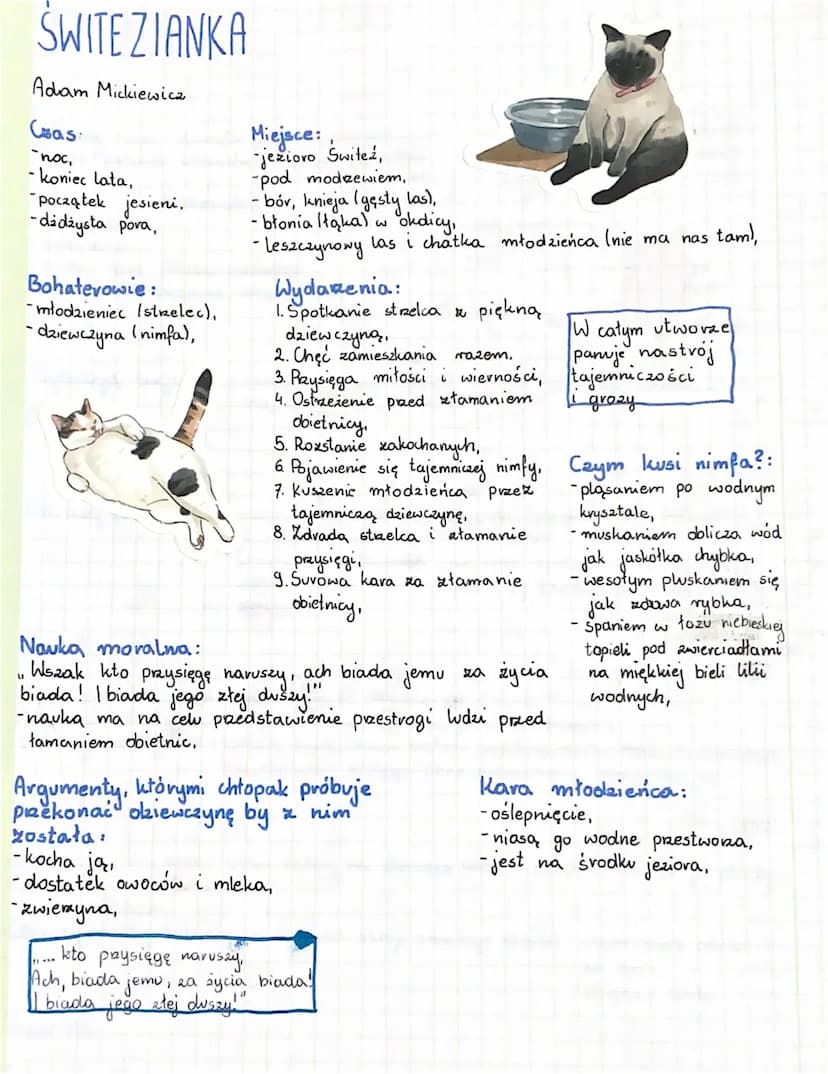 ŚWITEZIANKA
Adam Mickiewicz
Czas:
-noc,
-koniec lata,
-początek jesieni,
-dżdżysta pora,
Miejsce:
-jezioro Świteź,
-pod modrzewiem,
-bór, knieja (gęsty las),
-błonia (łąka) w okolicy,
-leszczynowy las i chatka młodzieńca (nie ma nas tam),
Bohaterowie:
-młodzieniec (strzelec),
-dziewczyna (nimfa),
Wydarzenia:
1. Spotkanie strzelca z piękną
dziewczyną,
2. Chęć zamieszkania razem.
3. Przysięga miłości i wierności,
4. Ostrzeżenie przed złamaniem
obietnicy,
5. Rozstanie zakochanych,
6. Pojawienie się tajemniczej nimfy,
7. Kuszenie młodzieńca przez
tajemniczą dziewczynę,
8. Zdrada strzelca i złamanie
przysięgi,
9. Surowa kara za złamanie
obietnicy,
W całym utworze
panuje nastrój
tajemniczości
i grozy
Czym kusi nimfa?:
-pląsaniem po wodnym
krysztale,
-muskaniem oblicza wód
jak jaskółka chybka,
-wesołym pluskaniem się
jak zdrowa rybka,
-spaniem w łożu niebieskiej
topieli pod zwierciadłami
na miękkiej bieli lilii
wodnych,
Nauka moralna:
„Wszak kto przysięgę naruszy, ach biada jemu za życia
biada! I biada jego złej duszy!"
-nauka ma na celu przedstawienie przestrogi ludzi przed
łamaniem obietnic,
Argumenty, którymi chłopak próbuje
przekonać dziewczynę by z nim
została:
-kocha ją,
-dostatek owoców i mleka,
-zwierzyna,
Kara młodzieńca:
-oślepnięcie,
-niosą go wodne przestworza,
-jest na środku jeziora,
„... kto przysięgę naruszy,
Ach, biada jemu, za życia biada!
I biada jego złej duszy!"